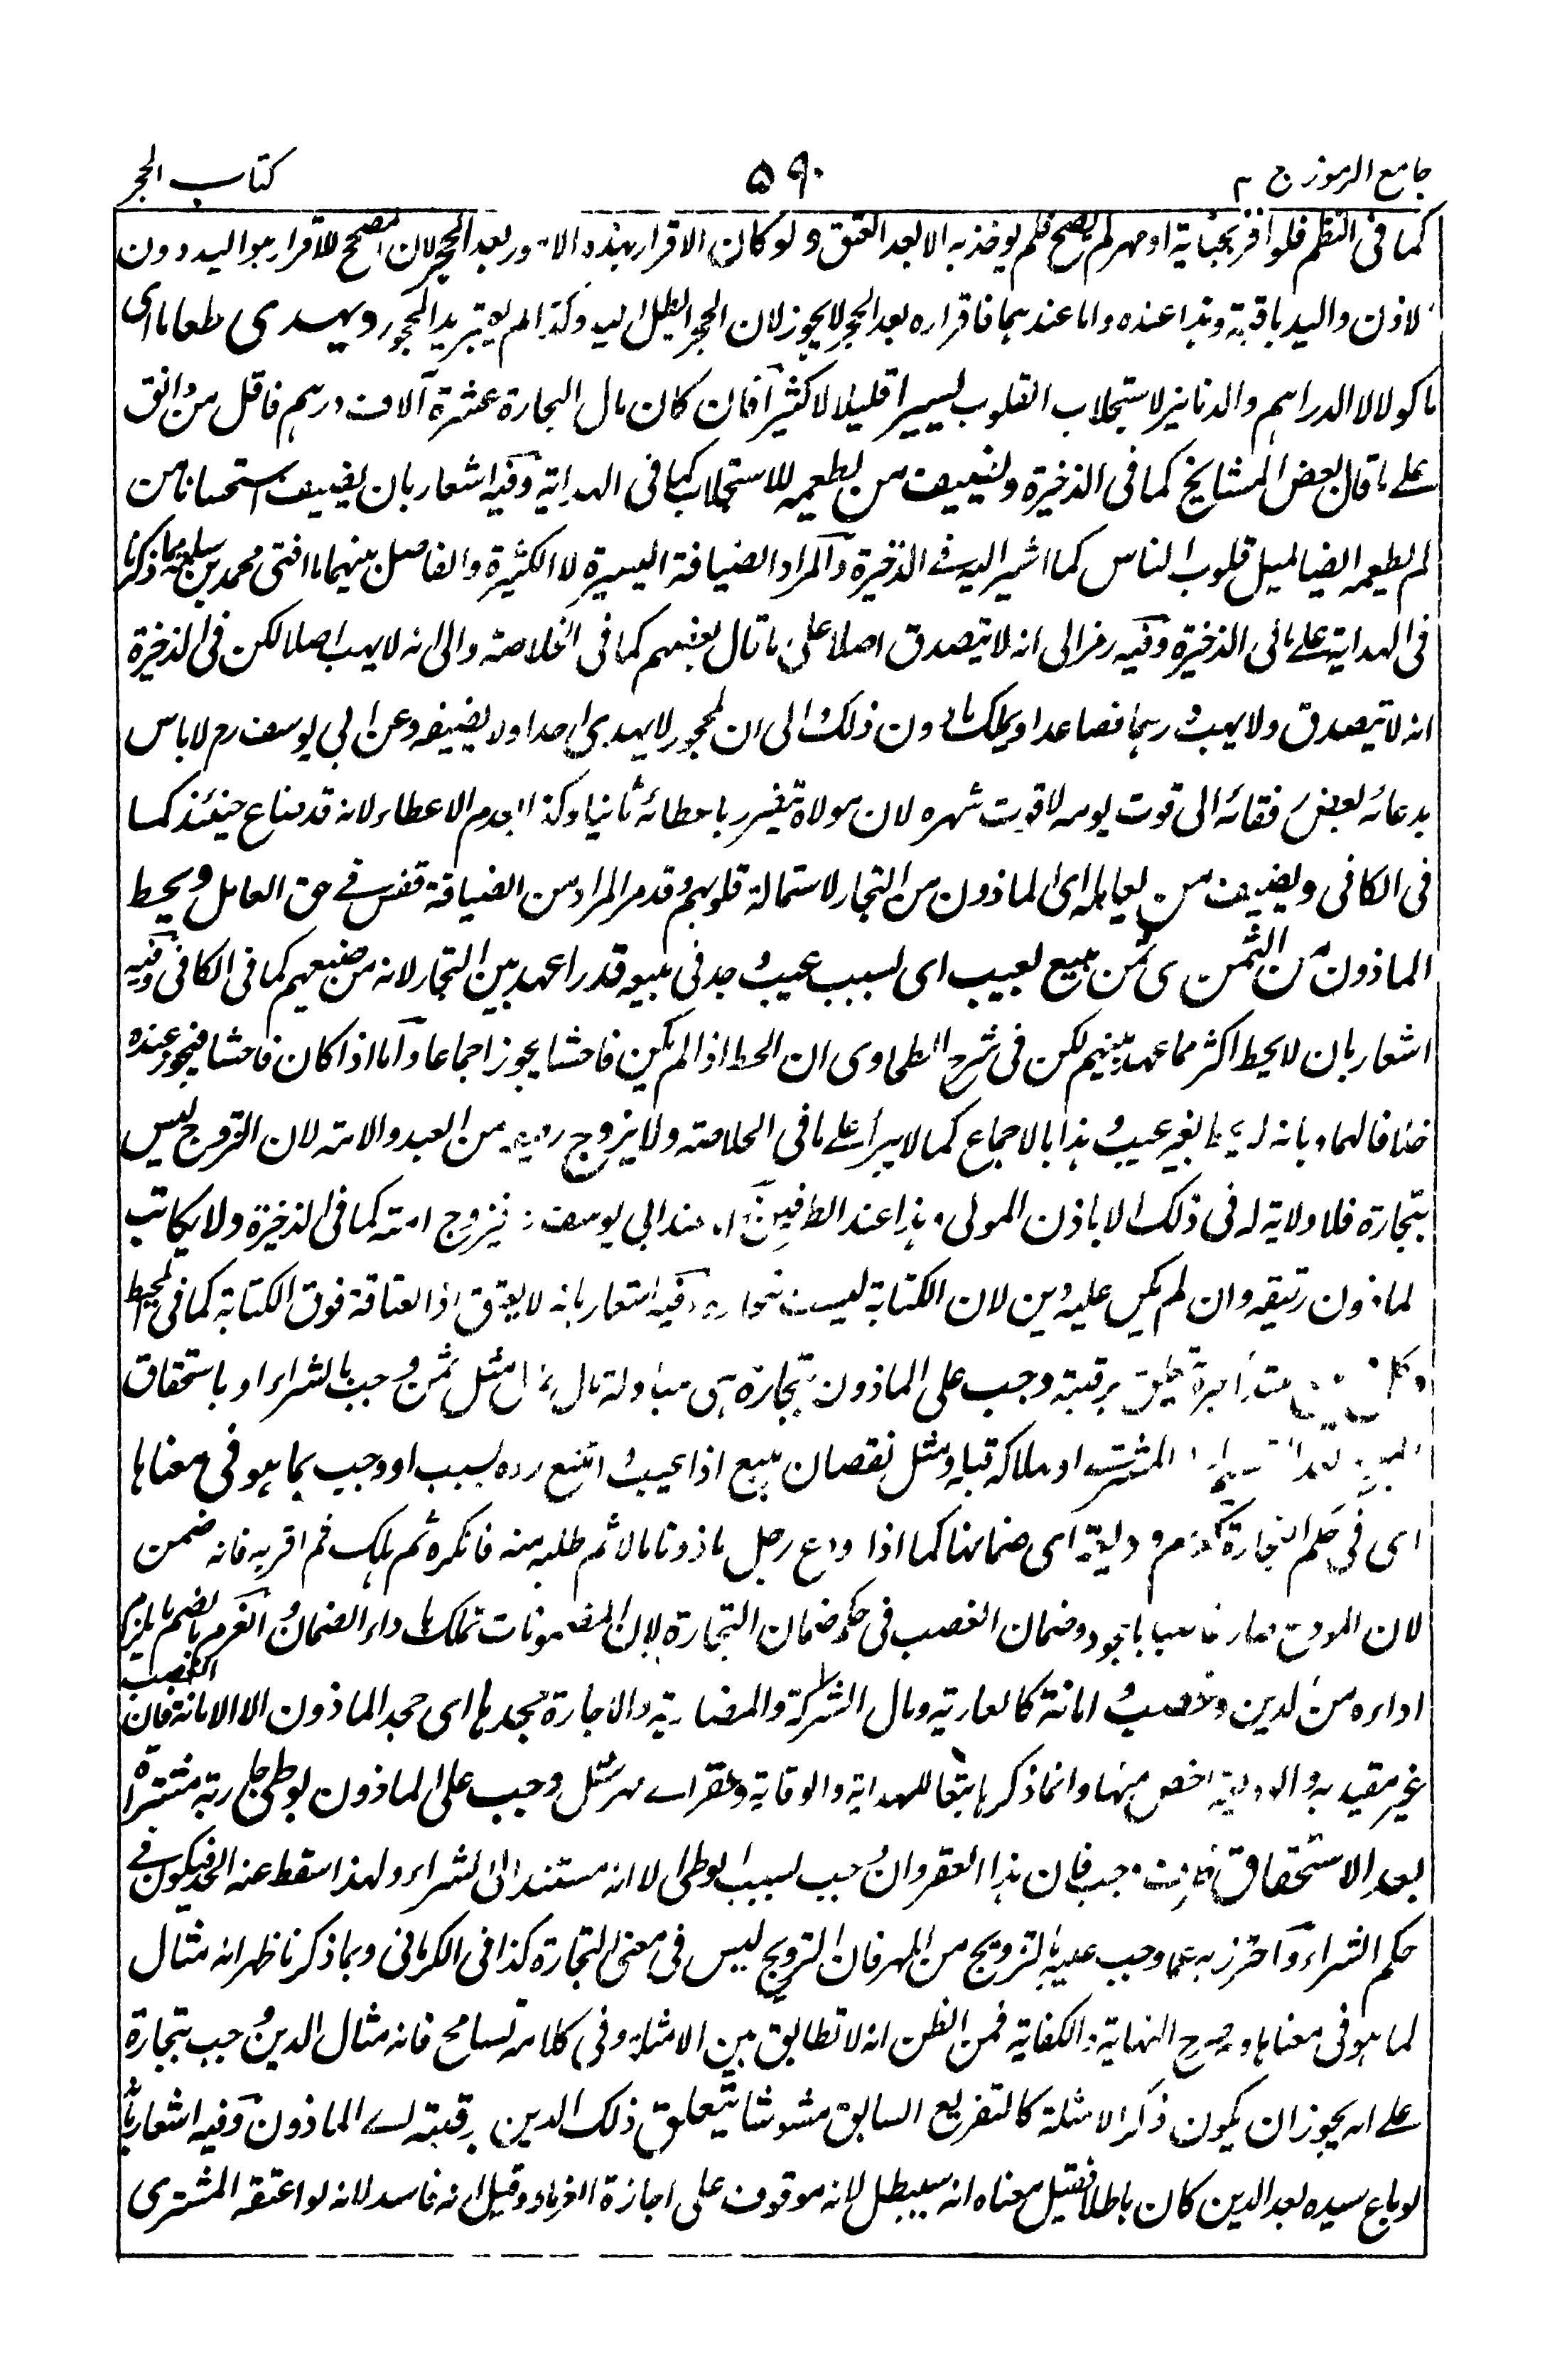 جامع الرموز ج ٣
٥٩٠
كتاب الحجر
كما فى النظم فلو اقر بجناية او مهر لم يصح فلم يوخذ به الا بعد العتق ولو كان الاقرار بهذه الامور بعد الحجر لان المصحح للاقرار هو اليد دون
الاذن واليد باقية وهذا عنده واما عندهما فاقراره بعد الحجر لا يجوز لان الحجر ابطل اليد وكذا لم يعتبر يد المحجور ويهدى طعاما اى
ماكولا لا الدراهم والدنانير لاستجلاب القلوب يسيرا قليلا لا كثيرا فان كان مال التجارة عشرة آلاف درهم فاقل من دانق
على ما قال بعض المشايخ كما فى الذخيرة ويضيف من يطعمه للاستجلاب كما فى الهداية وفيه اشعار بان يضيف استحسانا من
لم يطعمه ايضا لميل قلوب الناس كما اشير اليه فى الذخيرة والمراد الضيافة اليسيرة لا الكثيرة والفاصل بينهما ما افتى محمد بن سلمة بما ذكرنا
فى الهداية على ما فى الذخيرة وفيه رمز الى انه لا يتصدق اصلا على ما قال بعضهم كما فى الخلاصة والى انه لا يهب اصلا لكن فى الذخيرة
انه لا يتصدق ولا يهب درهما فصاعدا ويملك ما دون ذلك والى ان المحجور لا يهدى احدا ولا يضيفه وعن ابى يوسف رح لا باس
بدعائه بعض رفقائه الى قوت يومه لا قوت شهره لان مولاه يتضرر باعطائه ثانيا وكذا بعدم الاعطاء لانه قد ضاع حينئذ كما
فى الكافى ويضيف من يعامله اى الماذون من التجار لاستمالة قلوبهم وقد مر المراد من الضيافة فى حق العامل ويحط
الماذون من الثمن اى ثمن مبيع بعيب اى بسبب عيب وجد فى مبيعه قدرا عهد بين التجار لانه من صنيعهم كما فى الكافى وفيه
اشعار بان لا يحط اكثر مما عهد بينهم لكن فى شرح الطحاوى ان الحط اذا لم يكن فاحشا يجوز اجماعا واما اذا كان فاحشا فيجوز عنده
خلافا لهما وبانه لا يحط بغير عيب وهذا بالاجماع كما لا يبرأ على ما فى الخلاصة ولا يزوج رقيقه من العبد والامة لان التزوج ليس
بتجارة فلا ولاية له فى ذلك الا باذن المولى وهذا عند الطرفين واما عند ابى يوسف فيزوج امته كما فى الذخيرة ولا يكاتب
الماذون رقيقه وان لم يكن عليه دين لان الكتابة ليست بتجارة وفيه اشعار بانه لا يعتق اذ العتاقة فوق الكتابة كما فى المحيط
وكل دين متعلق برقبته وجب على الماذون بتجارة هى مبادلة مال بمال مثل ثمن وجب بالشراء او باستحقاق
المشترى او هلاكه قبله ومثل نقصان مبيع اذا عيب وامتنع رده بسبب او وجب بما هو فى معناها
اى فى حكم التجارة كغرم وديعة اى ضمانها كما اذا اودع رجل ماذونا مالا ثم طلبه منه فانكره ثم هلك ثم اقر به فانه ضمن
لان المودع صار غاصبا بالجحود وضمان الغصب فى حكم ضمان التجارة لان المضمونات تملك باداء الضمان والغرم بالضم ما يلزم
اداؤه من الدين وغصب وامانة كالعارية ومال الشركة والمضاربة والاجارة جحدها اى جحد الماذون الا الامانة فان الغصب
غير مقيد به والوديعة اخص منها وانما ذكرها تبعا للهداية والوقاية وعقر اى مهر مثل وجب على الماذون بوطى جارية مشتراة
بعد الاستحقاق وجب فان هذا العقر وان وجب بسبب الوطى لا انه مستند الى الشراء ولهذا سقط عنه الحد فيكون فى
حكم الشراء واحترز به عما وجب عليه بالتزويج من المهر فان التزويج ليس فى معنى التجارة كذا فى الكرمانى وبما ذكرنا ظهر انه مثال
لما هو فى معناها وبه صرح النهاية والكفاية فمن الظن انه لا تطابق بين الامثلة وفى كلامه تسامح فانه مثال الدين وجب بتجارة
على انه يجوز ان يكون ذكر الامثلة كالتفريع السابق مشوشا يتعلق ذلك الدين برقبته اى الماذون وفيه اشعار بانه
لو باع سيده بعد الدين كان باطلا فقيل معناه انه سيبطل لانه موقوف على اجازة الغرماء وقيل انه فاسد لانه لو اعتقه المشترى